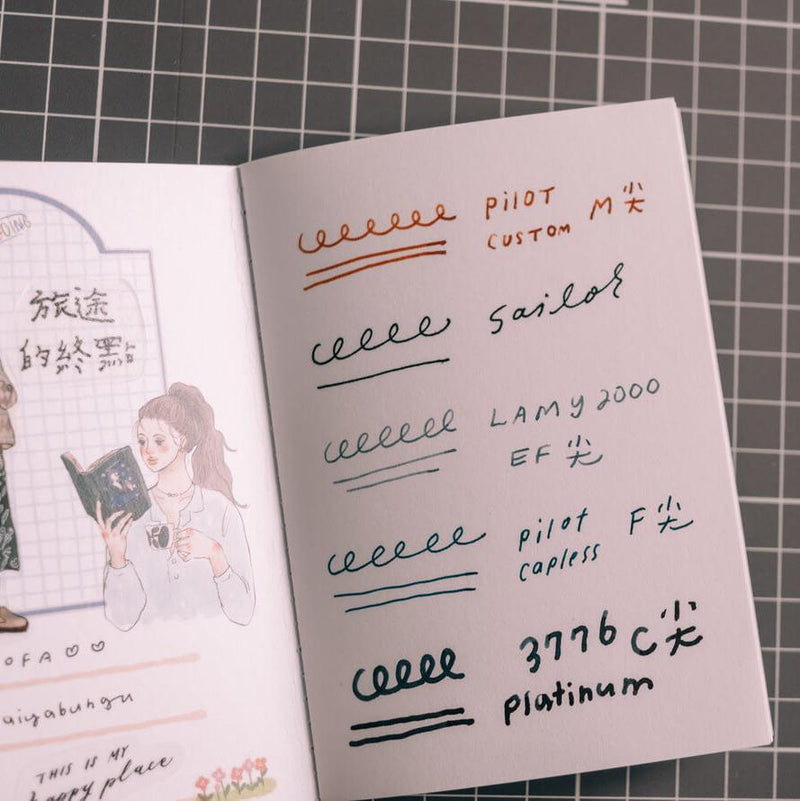 旅途
的終點
OFA
aiyabungu
THIS IS MY
happy place
PILOT
CUSTOM M尖
Sailor
LAMY 2000
EF尖
pilot F尖
capless
3776 C尖
platinum